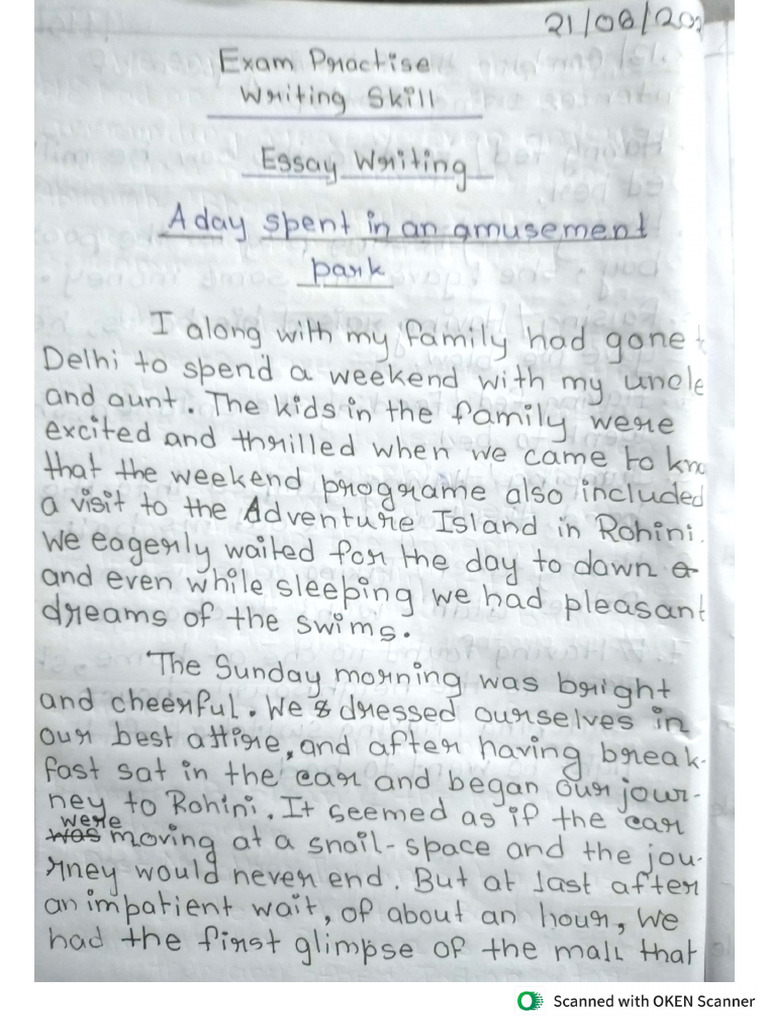 21/08/202
Exam Practise
Writing Skill
Essay Writing
A day spent in an amusement
park
I along with my family had gone
Delhi to spend a weekend with my uncle
and aunt. The kids in the family were
excited and thrilled when we came to kno
that the weekend programe also included
a visit to the Adventure Island in Rohini.
We eagerly waited for the day to dawn
and even while sleeping we had pleasant
dreams of the swims.
The Sunday morning was bright
and cheerful. We dressed ourselves in
our best attire, and after having break-
fast sat in the car and began our jour-
ney to Rohini. It seemed as if the car
were
was moving at a snail-space and the jou-
rney would never end. But at last after
an impatient wait, of about an hour, we
had the first glimpse of the mall that
Scanned with OKEN Scanner